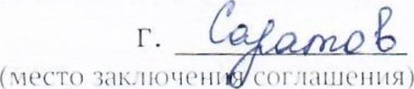 г. Саратов
(место заключения соглашения)